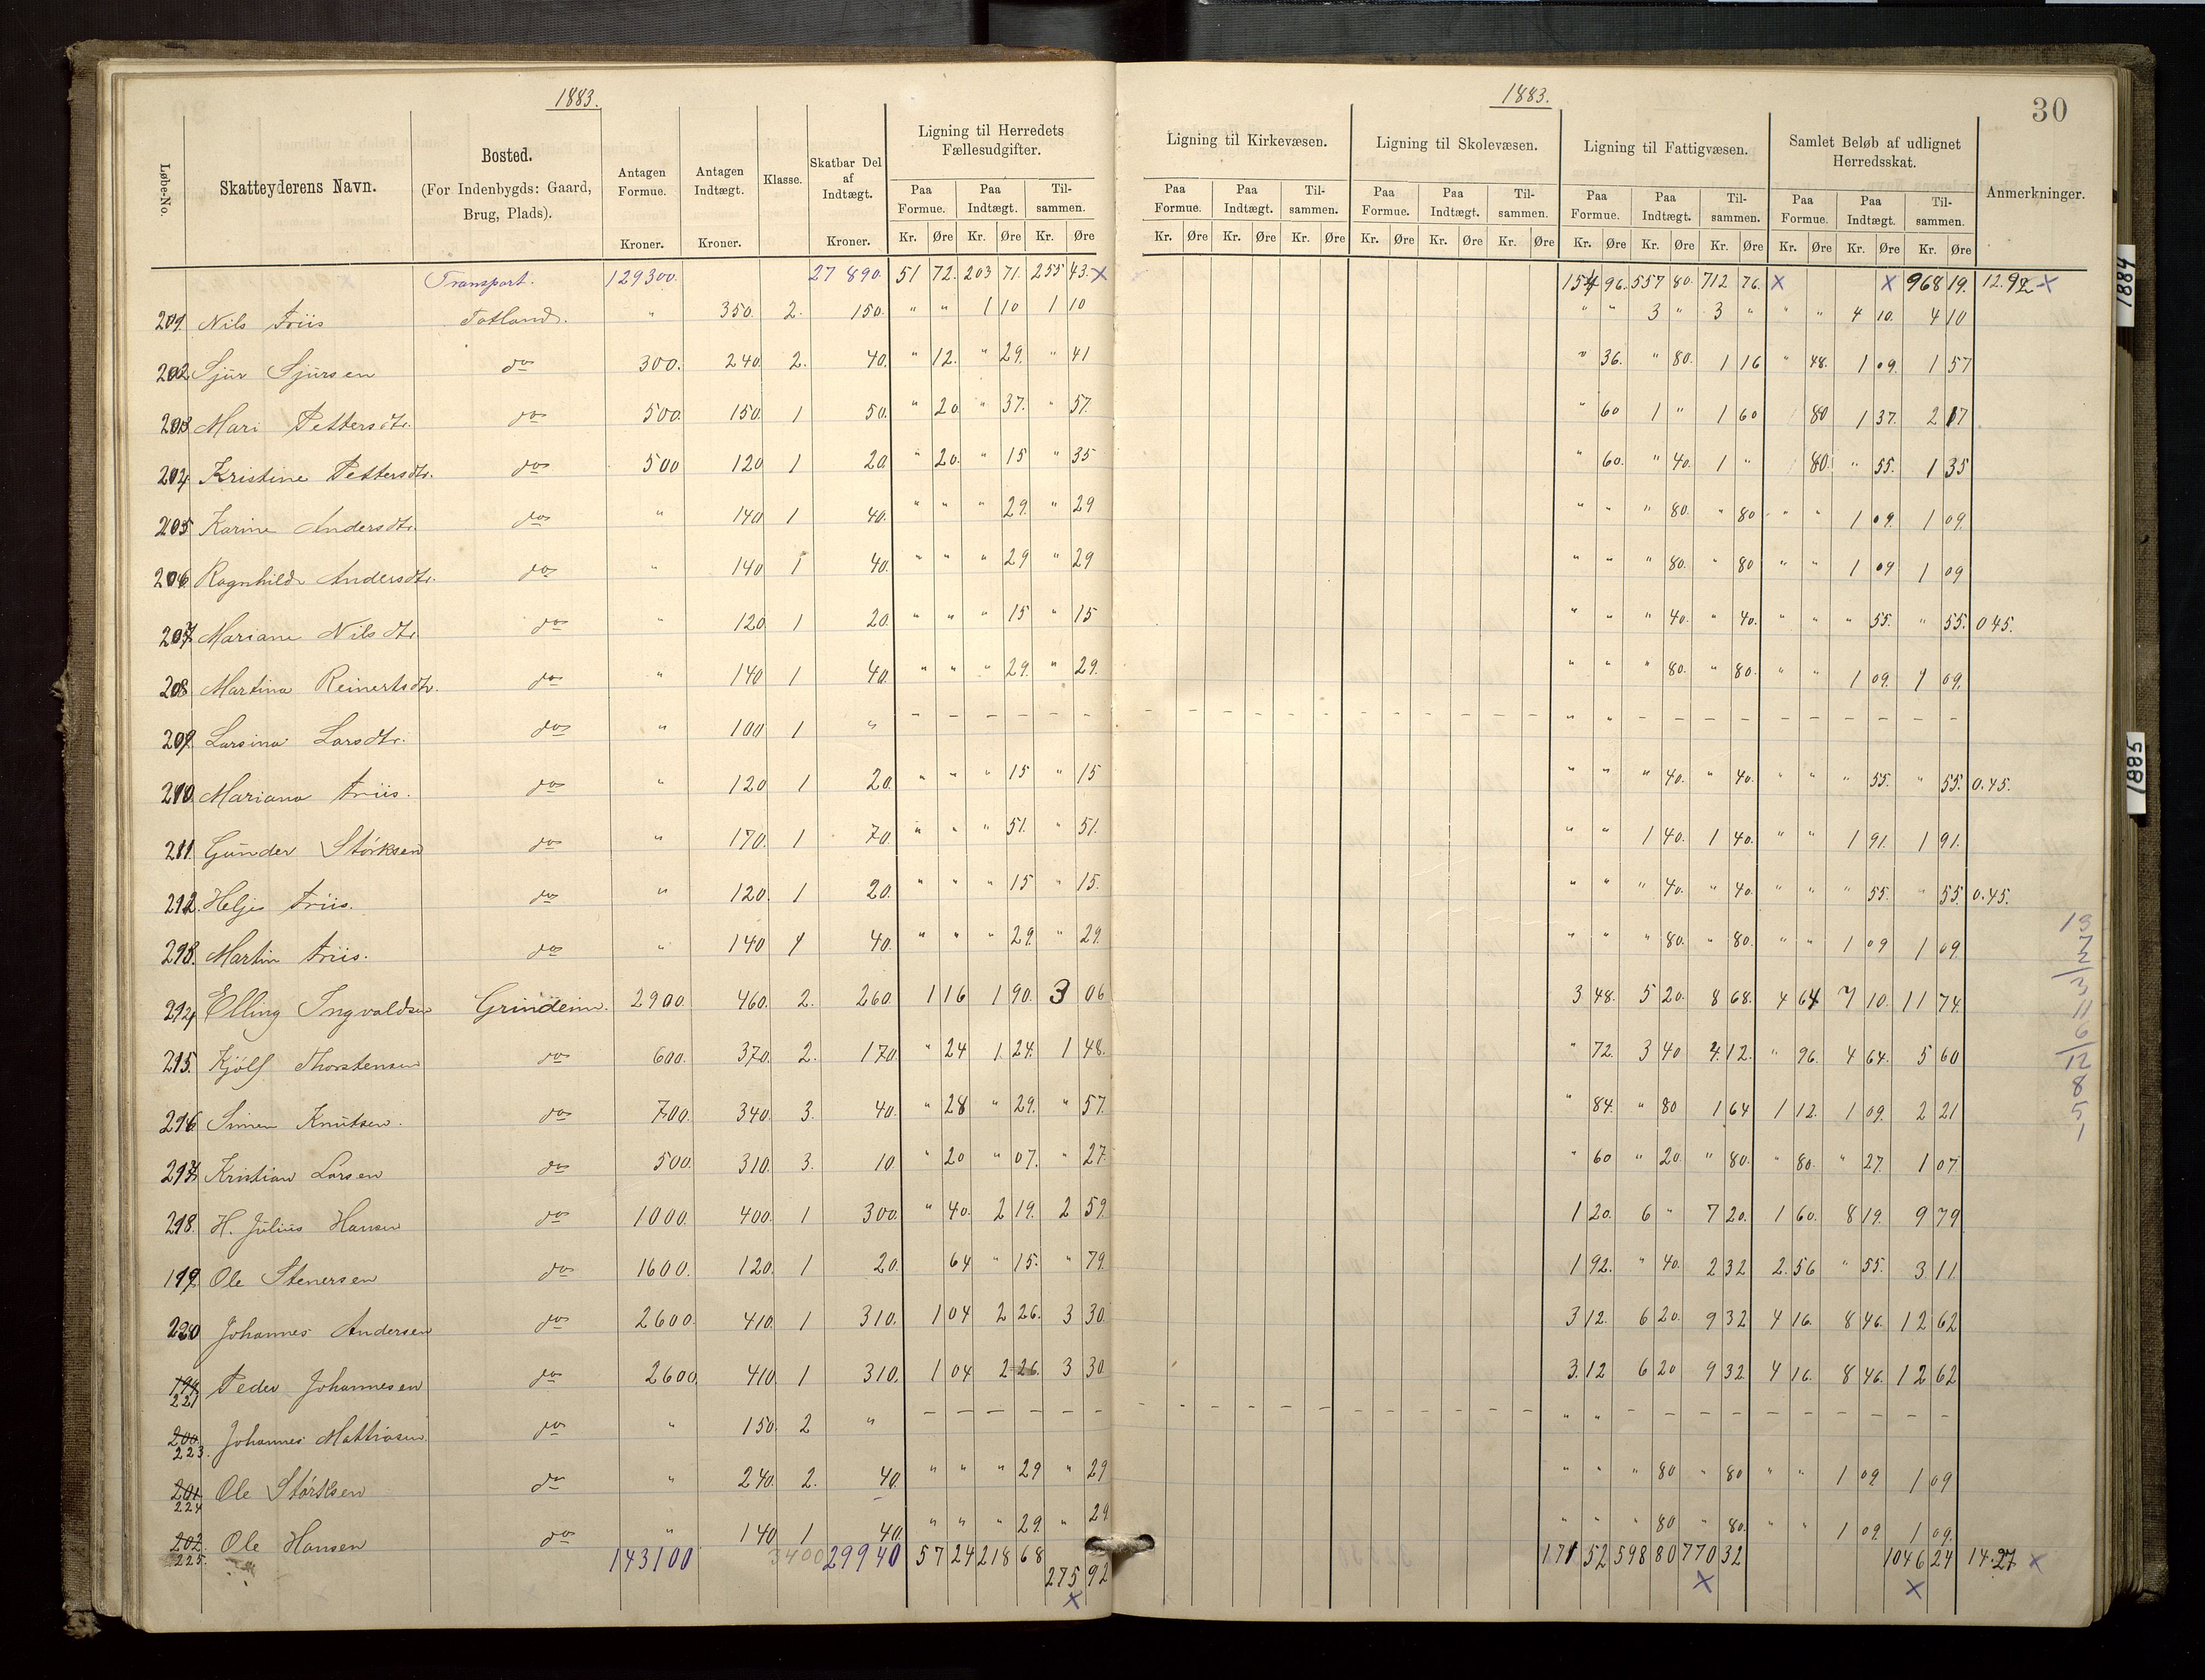 1883.
1883.
30
Løbe-No. Skatteyderens Navn. Bosted. (For Indenbygds: Gaard, Brug, Plads). Antagen Formue. Kroner. Antagen Indtægt. Kroner. Klasse. Skatbar Del af Indtægt. Kroner. Ligning til Herredets Fællesudgifter. Paa Formue. Kr. Øre Paa Indtægt. Kr. Øre Til- sammen. Kr. Øre
Ligning til Kirkevæsen. Paa Formue. Kr. Øre Paa Indtægt. Kr. Øre Til- sammen. Kr. Øre Ligning til Skolevæsen. Paa Formue. Kr. Øre Paa Indtægt. Kr. Øre Til- sammen. Kr. Øre Ligning til Fattigvæsen. Paa Formue. Kr. Øre Paa Indtægt. Kr. Øre Til- sammen. Kr. Øre Samlet Beløb af udlignet Herredsskat. Paa Formue. Kr. Øre Paa Indtægt. Kr. Øre Til- sammen. Kr. Øre Anmerkninger.
Transport. 129300. 27 890. 51 72. 203 71. 255 43. x 154 96. 557 80. 712 76. x x 968 19. 12.92 x
209. Nils Friis Totland. " 350. 2. 150. " " 1 10 1 10 " " 3 " 3 " " " 4 10. 4 10
202. Sjur Sjursen do 300. 240. 2. 40. " 12. " 29. " 41 " 36. " 80. 1 16 " 48. 1 09. 1 57
203 Mari Pettersdtr. do 500. 150. 1 50. " 20. " 37. " 57. " 60 1 " 1 60 80 1 37. 2 17
204. Kristine Pettersdtr. do 500 120 1 20. " 20. " 15 " 35 " 60. " 40. 1 " 80. " 55. 1 35
205 Karine Andersdtr. do " 140 1 40. " " " 29. " 29 " " " 80. " 80 " " 1 09. 1 09.
206 Ragnhild Andersdtr. do " 140 1 40. " " " 29 " 29 " " " 80. " 80 " " 1 09 1 09
207 Mariane Nilsdtr. do " 120. 1 20. " " " 15 " 15 " " " 40. " 40. " " " 55. " 55. 0 45.
208 Martina Reinertsdtr. do " 140 1 40. " " " 29. " 29. " " " 80. " 80. " " 1 09. 1 09.
209. Larsina Larsdtr. do " 100 1 " – – – – – – – – – – – – – – – – – – " " – – – – – – – – – –
210. Mariana Friis. do " 120 1 20. " " " 15 " 15 " " " 40. " 40. " " " 55. " 55. 0.45.
211. Gunder Størksen do " 170. 1 70. " " " 51. " 51. " " 1 40. 1 40. " " 1 91. 1 91.
212. Helje Friis. do " 120. 1 20. " " " 15 " 15. " " " 40. " 40. " " " 55. " 55. 0.45.
213. Martin Friis. do " 140 1 40. " " " 29. " 29. " " " 80. " 80. " " 1 09 1 09
214 Elling Ingvaldsen Grindeim. 2900. 460. 2. 260 1 16 1 90. 3 06 3 48. 5 20. 8 68. 4 64 7 10. 11 74.
215. Kjølf Thorstensen do 600. 370. 2. 170. " 24 1. 24. 1 48. " 72. 3 40 4. 12. " 96. 4 64. 5 60
216 Simen Knutsen. do 700. 340. 3. 40. " 28 " 29. " 57. " 84. " 80 1 64 1 12. 1 09. 2 21
217. Kristian Larsen do 500. 310. 3. 10. " 20 " 07. " 27. " 60 " 20. " 80. " 80. " 27. 1 07
218. H. Julius Hansen do 1000. 400. 1 300. " 40. 2 19. 2 59. 1 20. 6 " 7 20. 1 60. 8 19. 9 79
199. Ole Stenersen do 1600. 120. 1 20. 64 " 15. " 79. 1 92. " 40. 2 32 2. 56 " 55. 3 11.
220 Johannes Andersen do 2600. 410. 1 310. 1 04 2 26. 3 30. 3 12. 6 20. 9 32 4 16. 8 46. 12 62
199. 221 Peder Johannesen do 2600. 410. 1 310. 1 04 2 26. 3 30 3. 12 6 20 9 32. 4 16. 8 46. 12 62
200. 223. Johannes Mathiasen do " 150. 2 " – – – – – – – – – – – – – – – – – – " " – – – – – – – –
201. 224 Ole Størksen do " 240. 2. 40. " " " 29 " 29 " " " 80 " 80 " " 1 09. 1 09
202. 225. Ole Hansen do " 140 1 40. " " " 29. " 29 " " " 80 " 80. " " 1 09. 1 09.
143100 3400 29940 57 24 218 68 171 52 598 80 770 32 1046 24 14.27 x
275 92 x x
x
13
7
2
3
11
6
12
8
5
1
1884
1885